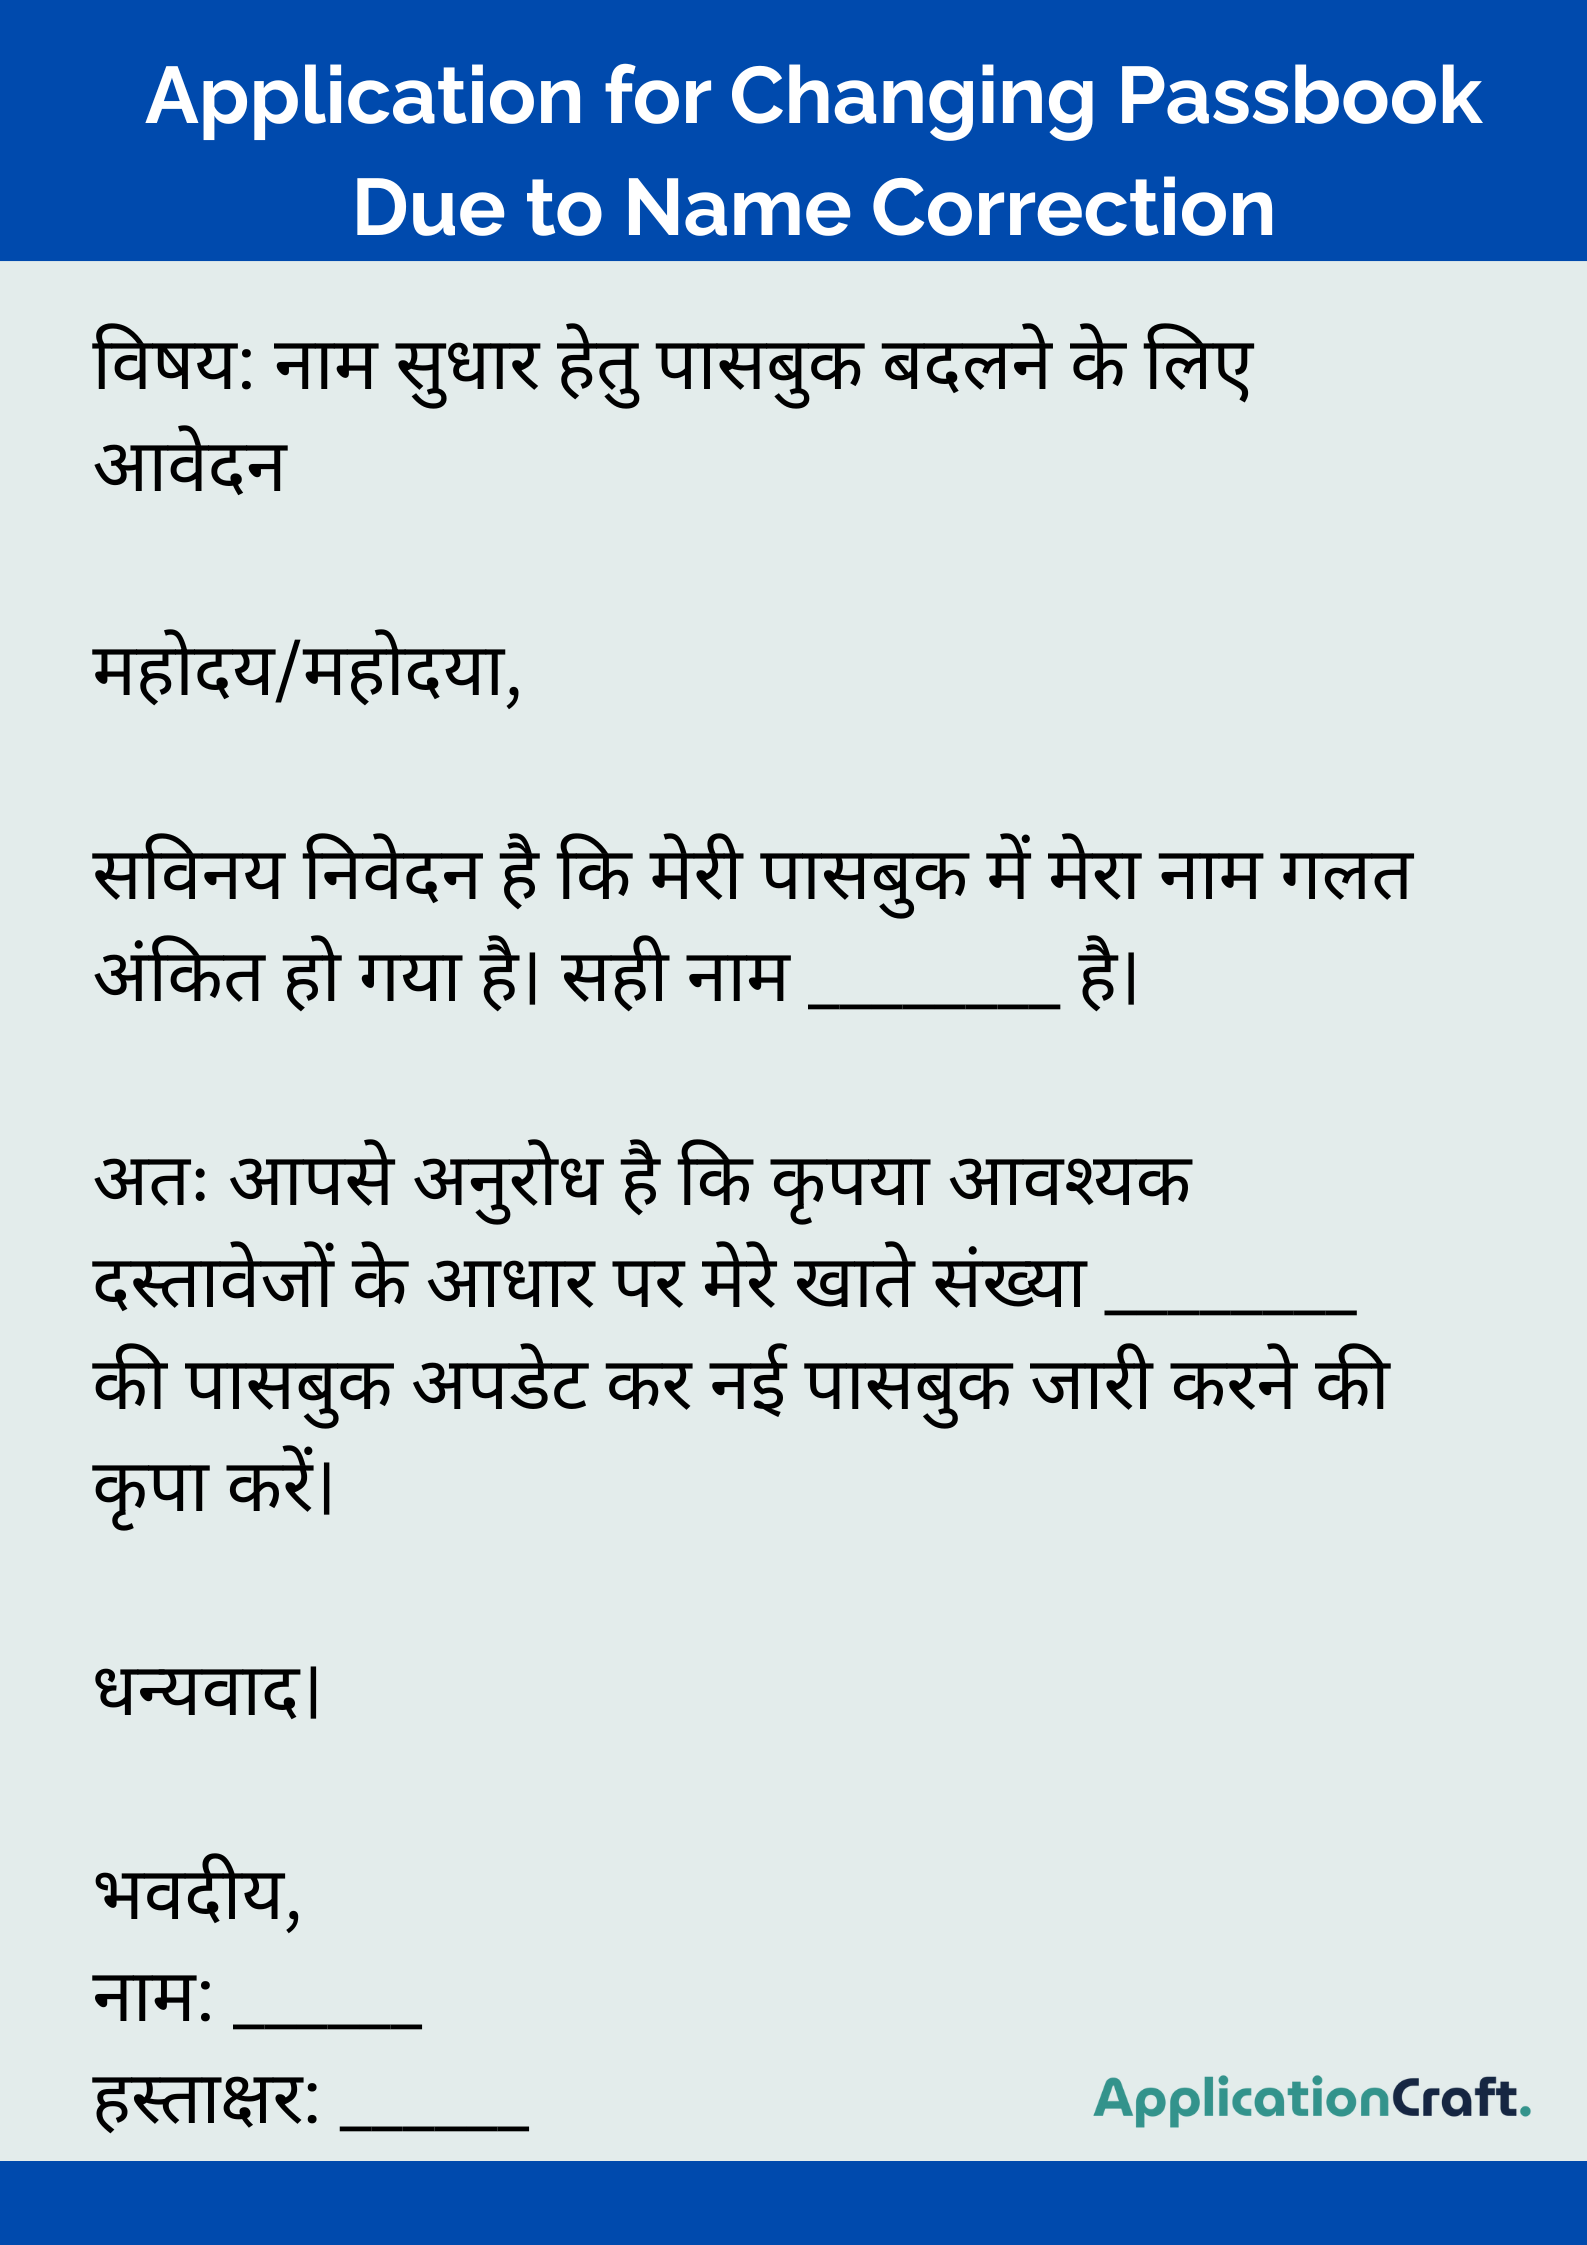 Application for Changing Passbook
Due to Name Correction
विषय: नाम सुधार हेतु पासबुक बदलने के लिए
आवेदन
महोदय/महोदया,
सविनय निवेदन है कि मेरी पासबुक में मेरा नाम गलत
अंकित हो गया है। सही नाम ________ है।
अतः आपसे अनुरोध है कि कृपया आवश्यक
दस्तावेजों के आधार पर मेरे खाते संख्या ________
की पासबुक अपडेट कर नई पासबुक जारी करने की
कृपा करें।
धन्यवाद।
भवदीय,
नाम: ______
हस्ताक्षर: ______
ApplicationCraft.